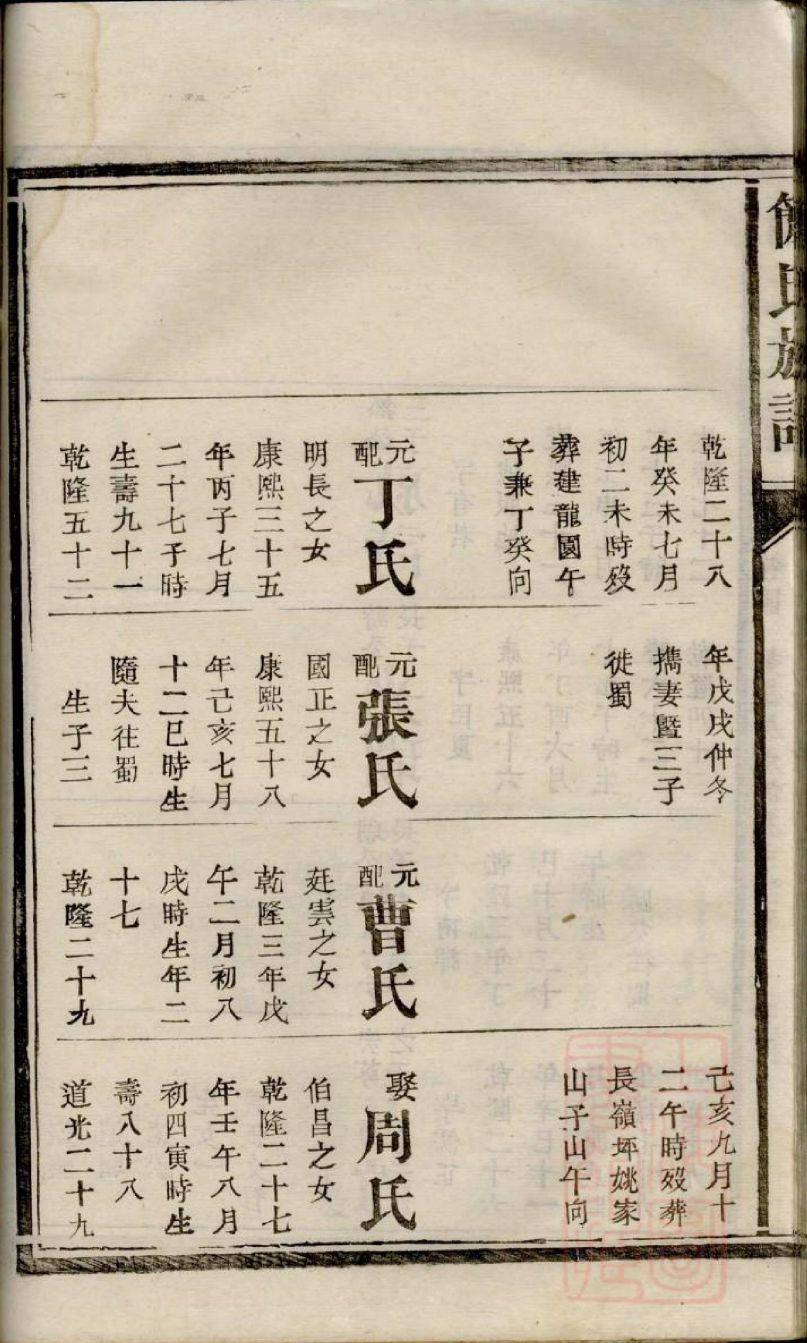 氏族譜
乾隆二十八
年癸未七月
初二未時歿
葬建龍園午
子兼丁癸向
元配丁氏
明長之女
康熙三十五
年丙子七月
二十七子時
生壽九十一
乾隆五十二
年戊戌仲冬
攜妻暨三子
徙蜀
元配張氏
國正之女
康熙五十八
年己亥七月
十二巳時生
隨夫往蜀
生子三
元配曹氏
廷雲之女
乾隆三年戊
午二月初八
戌時生年二
十七
乾隆二十九
己亥九月十
二午時歿葬
長嶺坪姚家
山子山午向
娶周氏
伯昌之女
乾隆二十七
年壬午八月
初四寅時生
壽八十八
道光二十九